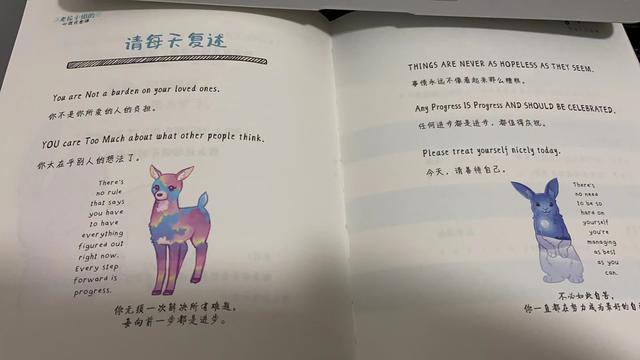 请每天复述
You are Not a burden on your loved ones.
你不是你所爱的人的负担。
YOU care Too Much about what other people think.
你太在乎别人的想法了。
There's
no rule
that says
you have
to have
everything
figured out
right now.
Every step
forward is
progress.
你无须一次解决所有难题，
每向前一步都是进步。
THINGS ARE NEVER AS HOPELESS AS THEY SEEM.
事情永远不像看起来那么糟糕。
Any Progress IS Progress AND SHOULD BE CELEBRATED.
任何进步都是进步，都值得庆祝。
Please treat yourself nicely today.
今天，请善待自己。
There's
no need
to be so
hard on
yourself
you're
managing
as best
as you
can.
不必如此自苦，
你一直都在努力成为最好的自